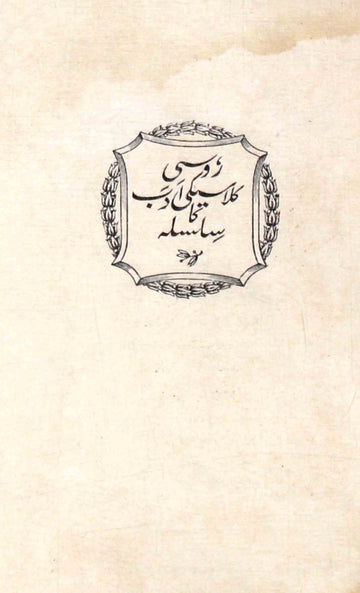 رُوسی
کلاسیکی اَدَب
کا
سِلسلہ